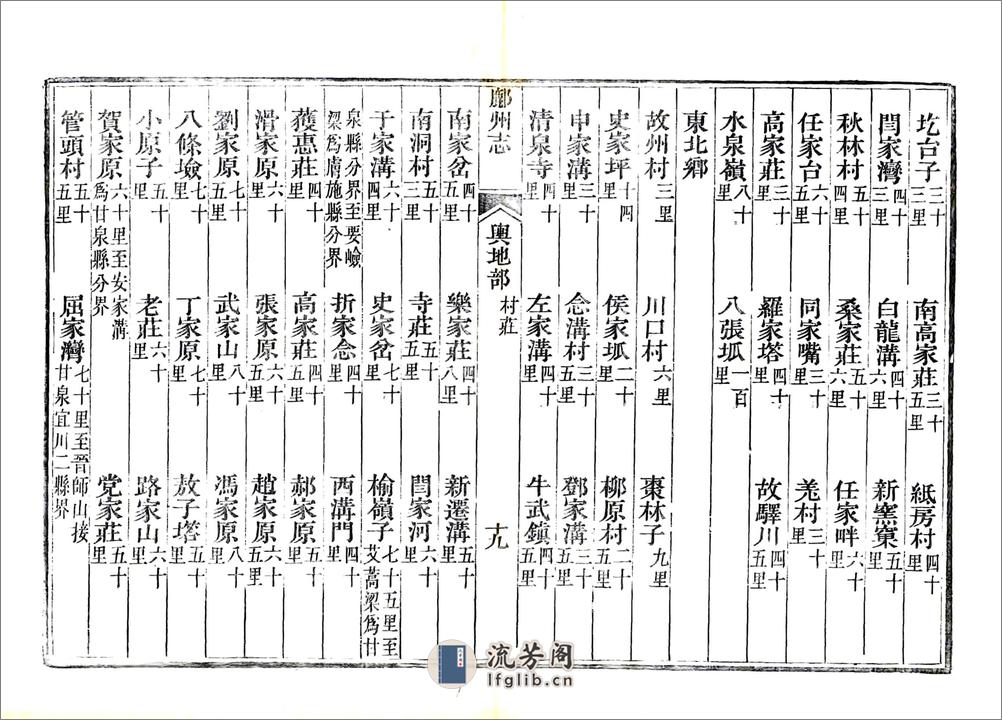 圪台子三十三里 南高家莊三十五里 紙房村四十里
閆家灣四十三里 白龍溝四十六里 新窰窠五十里
秋林村五十里 桑家莊五十六里 任家畔六十里
任家台六十五里 同家嘴三十里 羌村三十里
高家莊三十里 羅家塔四十里 故驛川四十五里
水泉嶺八十里 八張坬一百里
東北鄉
故州村三里 川口村六里 棗林子九里
史家坪十四里 侯家坬二十里 柳原村二十五里
申家溝三十里 念溝村三十五里 鄧家溝三十五里
清泉寺四十里 左家溝四十里 牛武鎮四十五里
鄜州志 輿地部 村莊 十九
南家岔四十五里 樂家莊四十八里 新遷溝五十里
南洞村五十三里 寺莊五十五里 閆家河六十里
于家溝六十四里 史家岔七十里 榆嶺子七十五里至艾蒿梁爲甘
泉縣分界至要嶮梁爲膚施縣分界 折家念四十里 西溝門四十里
獲惠莊四十里 高家莊四十五里 郝家原五十里
滑家原五十里 張家原六十五里 趙家原六十五里
劉家原七十五里 武家山八十里 馮家原八十里
八條嶮七十里 丁家原七十里 敖子塔五十里
小原子五十里 老莊六十里 路家山六十里
賀家原六十里至安家溝爲甘泉縣分界 党家莊五十里
管頭村五十五里 屈家灣七十里至晉師山接甘泉宜川二縣界
流芳阁
lfglib.cn